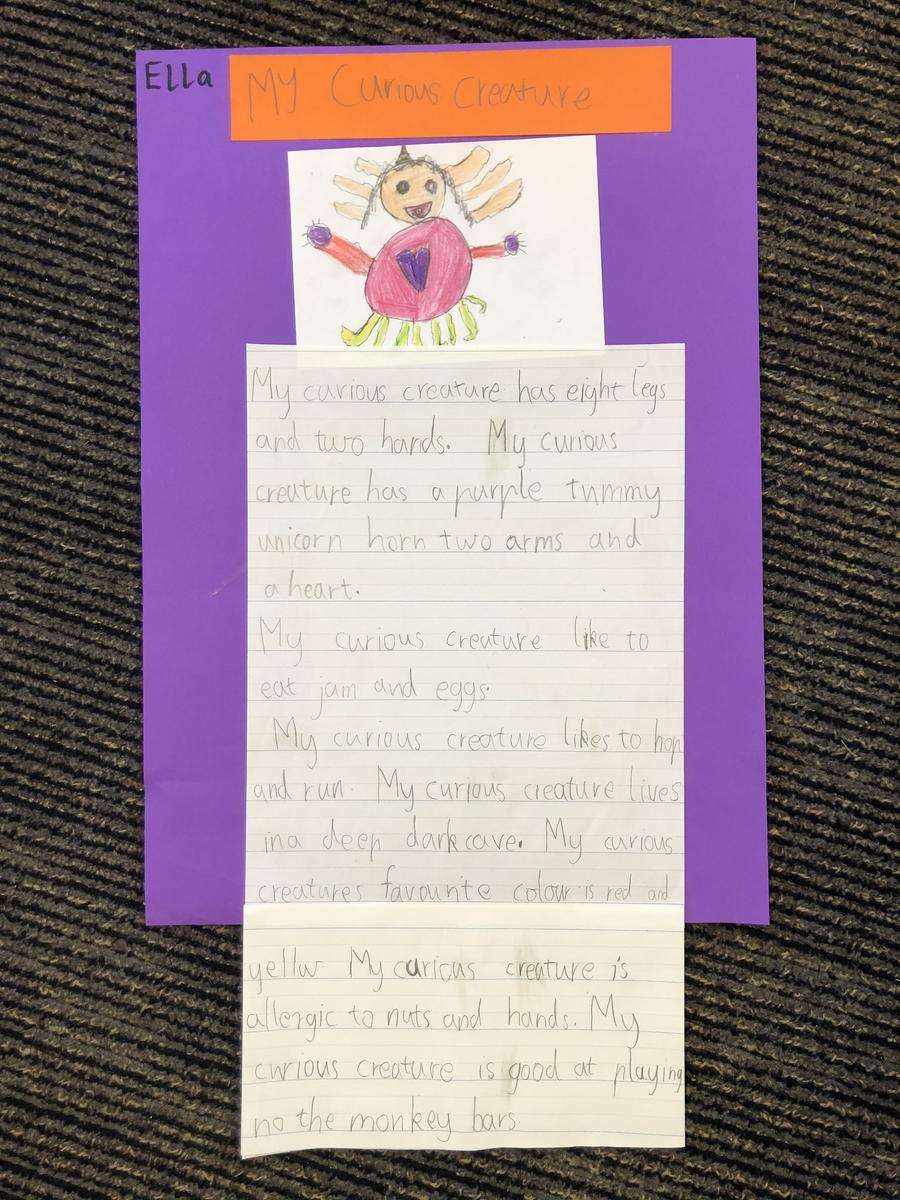 Ella
My Curious Creature
My curious creature has eight legs
and two hands. My curious
creature has a purple tummy
unicorn horn two arms and
a heart.
My curious creature like to
eat jam and eggs.
My curious creature likes to hop
and run. My curious creature lives
in a deep dark cave. My curious
creatures favourite colour is red and
yellw My curious creature is
allergic to nuts and hands. My
curious creature is good at playing
no the monkey bars.